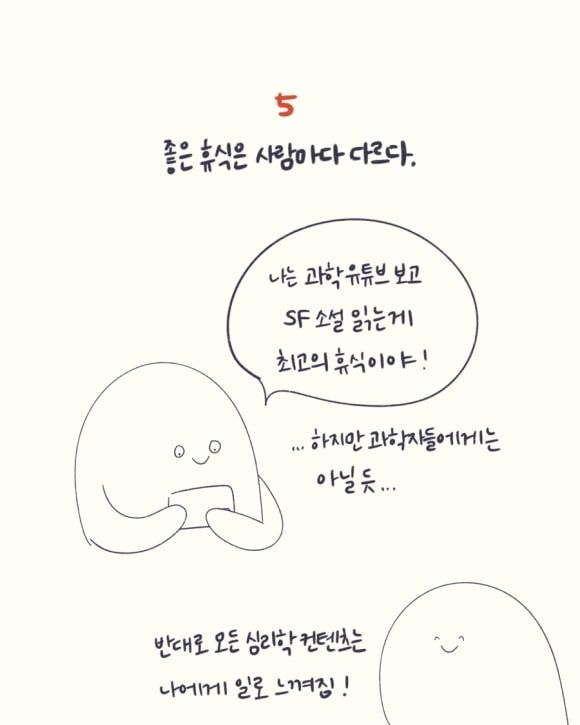 5
좋은 휴식은 사람마다 다르다.
나는 과학유튜브 보고
SF 소설 읽는게
최고의 휴식이야!
... 하지만 과학자들에게는
아닐 듯...
반대로 모든 심리학 컨텐츠는
나에게 일로 느껴짐!